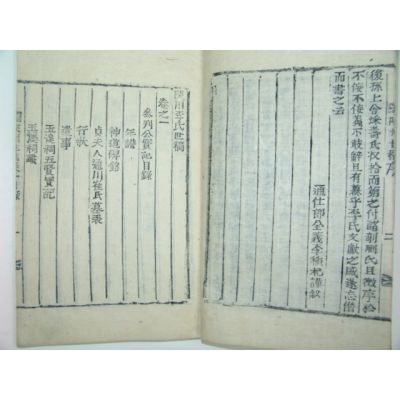 後孫上氏收拾而之付諸剞劂氏且徵序於
不佞不佞義不敢辭且有慕乎李氏文獻之盛遂忘僭
而書之云
通仕郎全義李謹叙
川李氏世稿
卷之一
參判公實記目錄
年譜
神道碑銘
貞夫人通川崔氏墓表
行狀
遺事
玉淵祠五賢實記
玉淵祠